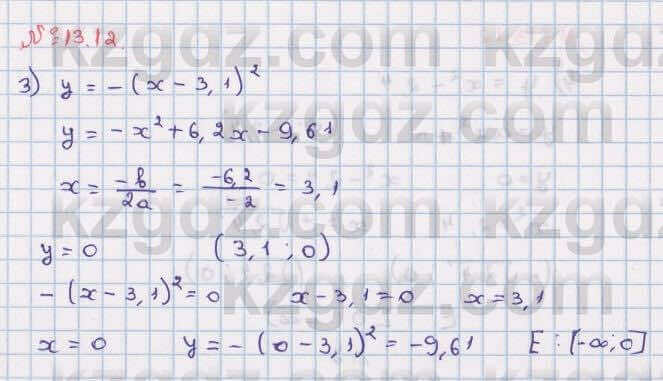 № 13.12.
3) y = -(x - 3,1)²
y = -x² + 6,2x - 9,61
x = -b/2a = -6,2/-2 = 3,1
y = 0 (3,1 ; 0)
-(x - 3,1)² = 0 x - 3,1 = 0 x = 3,1
x = 0 y = -(0 - 3,1)² = -9,61 E : [-∞; 0]
kzgdz.com